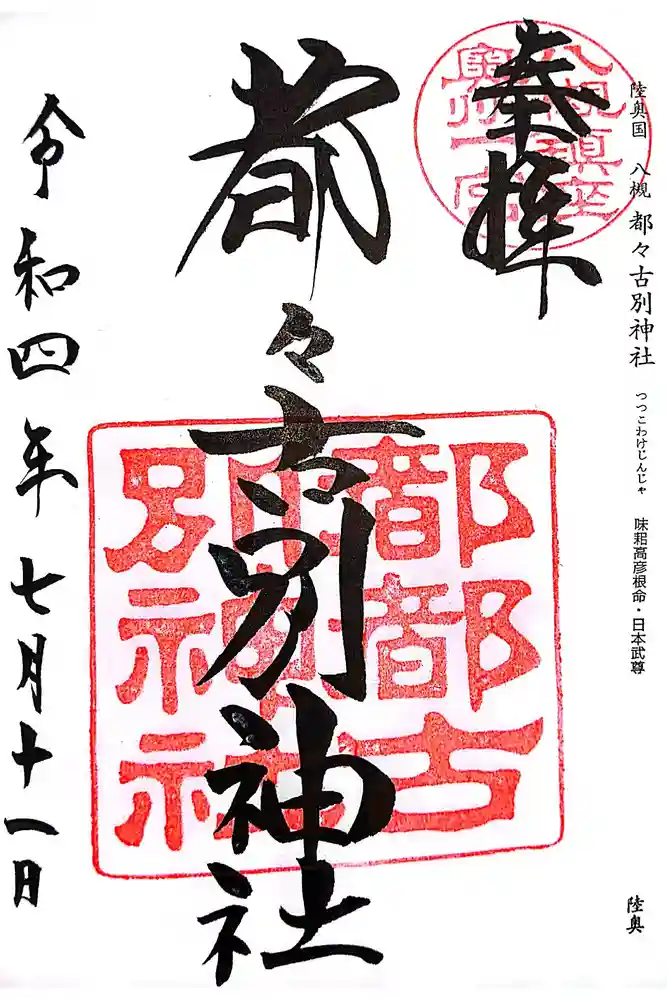 陸奥国 八槻 都々古別神社 つつこわけじんじゃ 味耜高彦根命・日本武尊
陸奥
奉拝
八槻鎮座
奥州一宮
都々古別神社
都都古
別神社
令和四年七月十一日